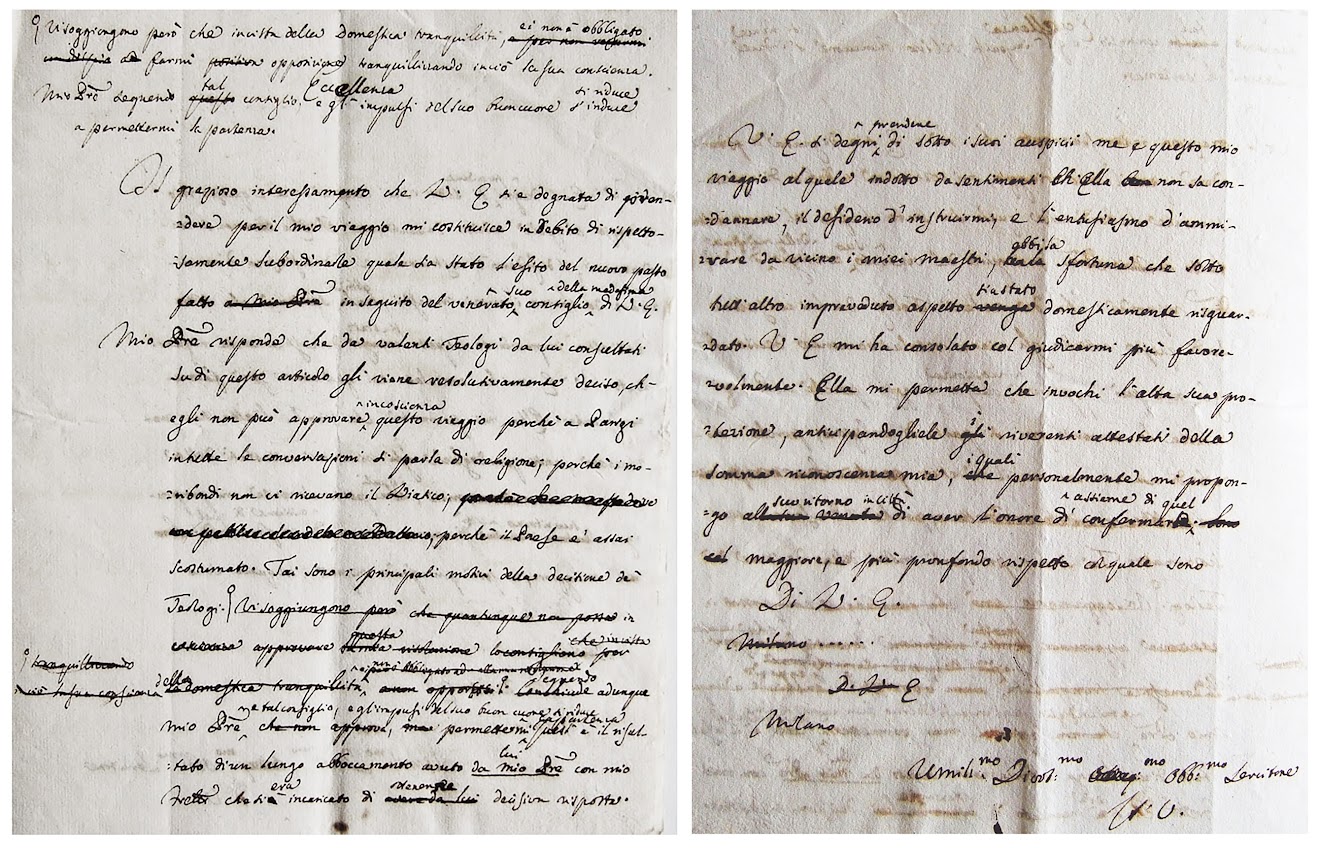 Vi soggiungono però che in vista della Domestica tranquillità, ei non è obbligato
a farmi opposizione tranquillizzando in ciò la sua conscienza.
Mio Pre seguendo tal consiglio, Eccellenza e gl'impulsi del suo buon cuore si riduce s'induce
a permettermi la partenza.
Il grazioso interessamento che V. E. si è degnata di
=dere per il mio viaggio mi costituisce in Debito di rispetto-
=samente subordinarle quale sia stato l'esito del nuovo passo
fatto a Mio Pre in seguito del venerato suo consiglio della medesima di V. E.
Mio Pre risponde che da valenti Teologi da lui consultati
su di questo articolo gli viene resolutivamente deciso, ch-
egli non può approvare in coscienza questo viaggio perchè a Parigi
in tutte le conversazioni si parla di religione; perchè i mo-
=ribondi non vi ricevano il Viatico; 
perchè il Paese e' assai
scostumato. Tai sono i principali motivi della decisione de
Teologi. Vi soggiungono però che quantunque non possa in
approvare questa lo consigliono per che in vista
tranquillizzando
in ciò la sua conscienza
della la domestica tranquillità a non opporsi. seguendo Conchiude adunque
tal consiglio, e gl'impulsi del suo buon cuore si riduce
mio Pre che non approva, ma permettermi la partenza questi è il risul-
tato di un lungo abboccamento avuto da lui mio Pre con mio
che si era incaricato di ottenerne aver da lui decisiva risposta.
V. E. si degni prendere di sotto i suoi auspicii me e questo mio
viaggio al quale indotto da sentimenti Ch Ella non sa con-
=dannare, il desiderio d'instruirmi, e l'entusiasmo d'ammi-
=rare da vicino i miei maestri, abbi la sfortuna che sotto
tutt'altro impreveduto aspetto sia stato venga domesticamente risguar-
=dato. V E mi ha consolato col giudicarmi più favore-
=volmente. Ella mi permetta che invochi l'alta sua pro-
=tezione, anticipandogliele i gli riverenti attestati della
somma riconoscenza mia, i quali che personalmente mi propon-
=go al suo ritorno in città di aver l'onore di confermare assieme di quel
col maggiore, e più profondo rispetto col quale sono
Di V. E.
Milano . . . . .
D. V. E
Milano
Umil:mo Divot:mo Obb:mo Servitore